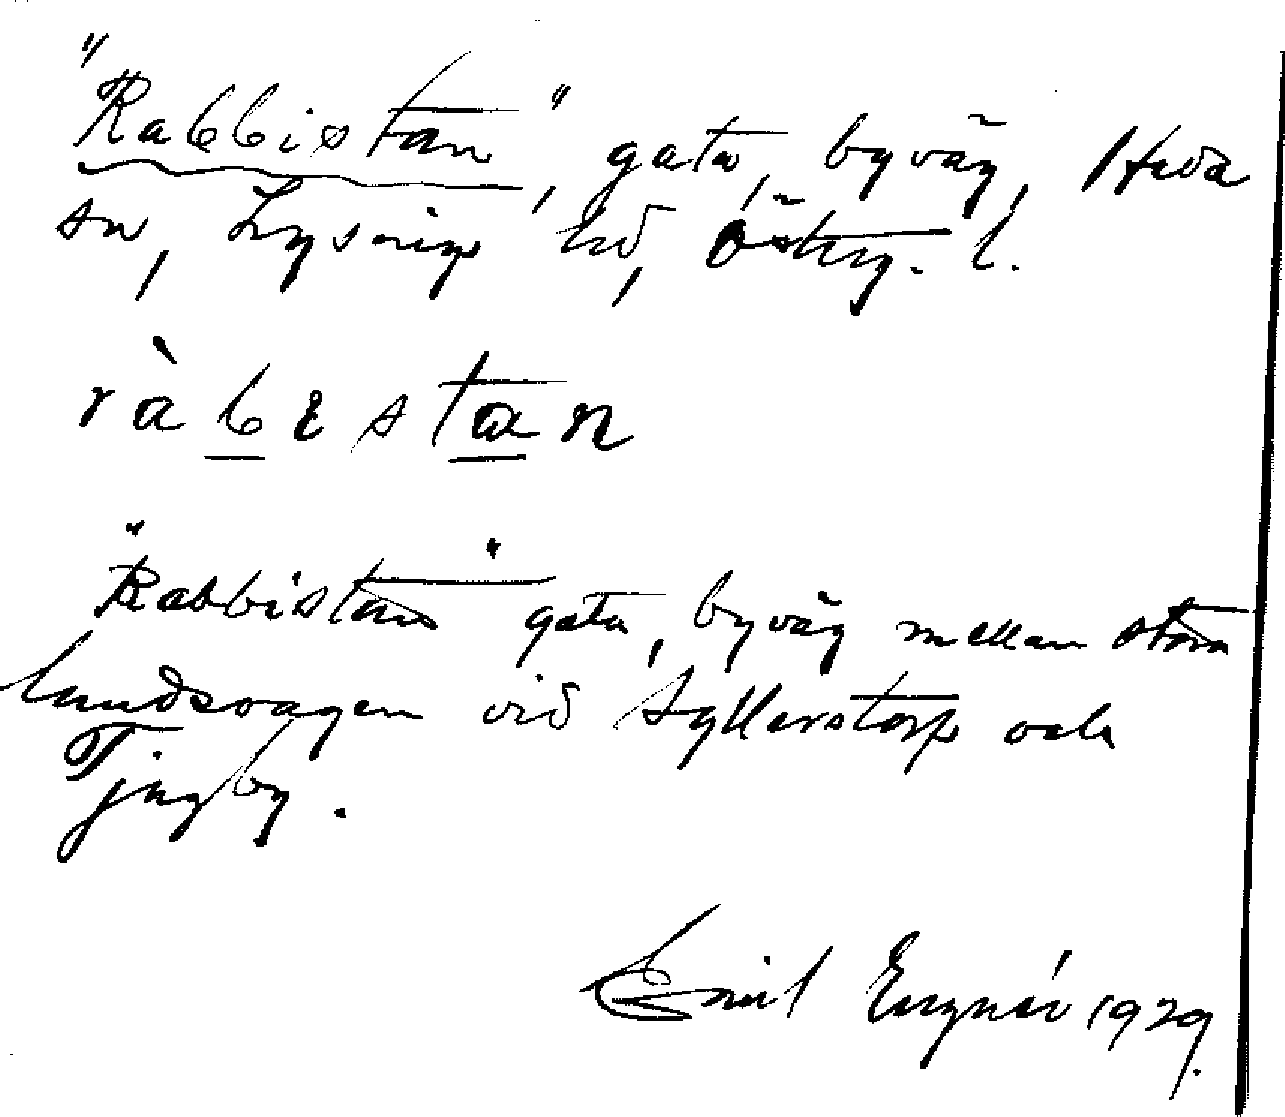 "Rabbistan", gata, byväg, Heda
sn, Lysings hd, Österg. l.
ràbɛstan
"Rabbistan" gata, byväg mellan stora
landsvägen vid Syllerstorp och
Tjugby.
Emil 1929.